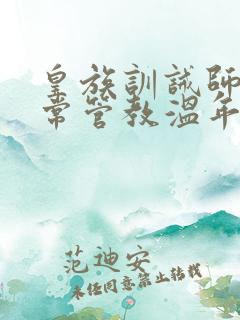 皇族訓誡師
常管教溫年
范迪安
未任同意禁止转载